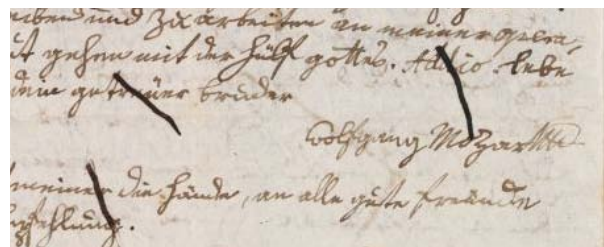 und zu arbeiten an meiner opera,
gehen mit der hülf gottes. Addio. lebe
dein getreuer bruder
Wolfgang Mozart
meiner die hände, an alle gute freunde